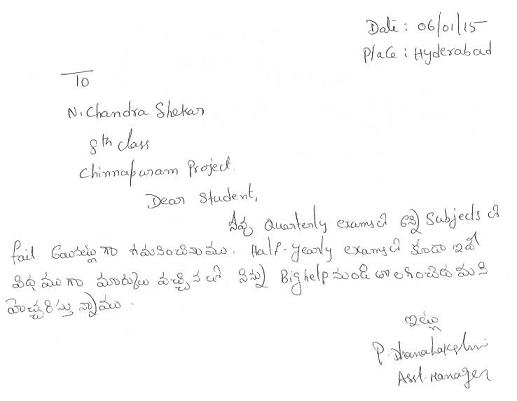 Date: 06/01/15
Place: Hyderabad
To
N. Chandra Shekar
8th class
Chinnapuram Project.
Dear Student,
నీవు Quarterly exams లో అన్ని Subjects లో
fail అయినట్లుగా గమనించినాము. Half-yearly exams లో కూడా ఇదే
విధముగా మార్కులు వచ్చినచో నిన్ను Bighelp నుండి తొలగించెదమని
హెచ్చరిస్తున్నాము.
ఇట్లు
P. Dhanalakshmi
Asst. Manager